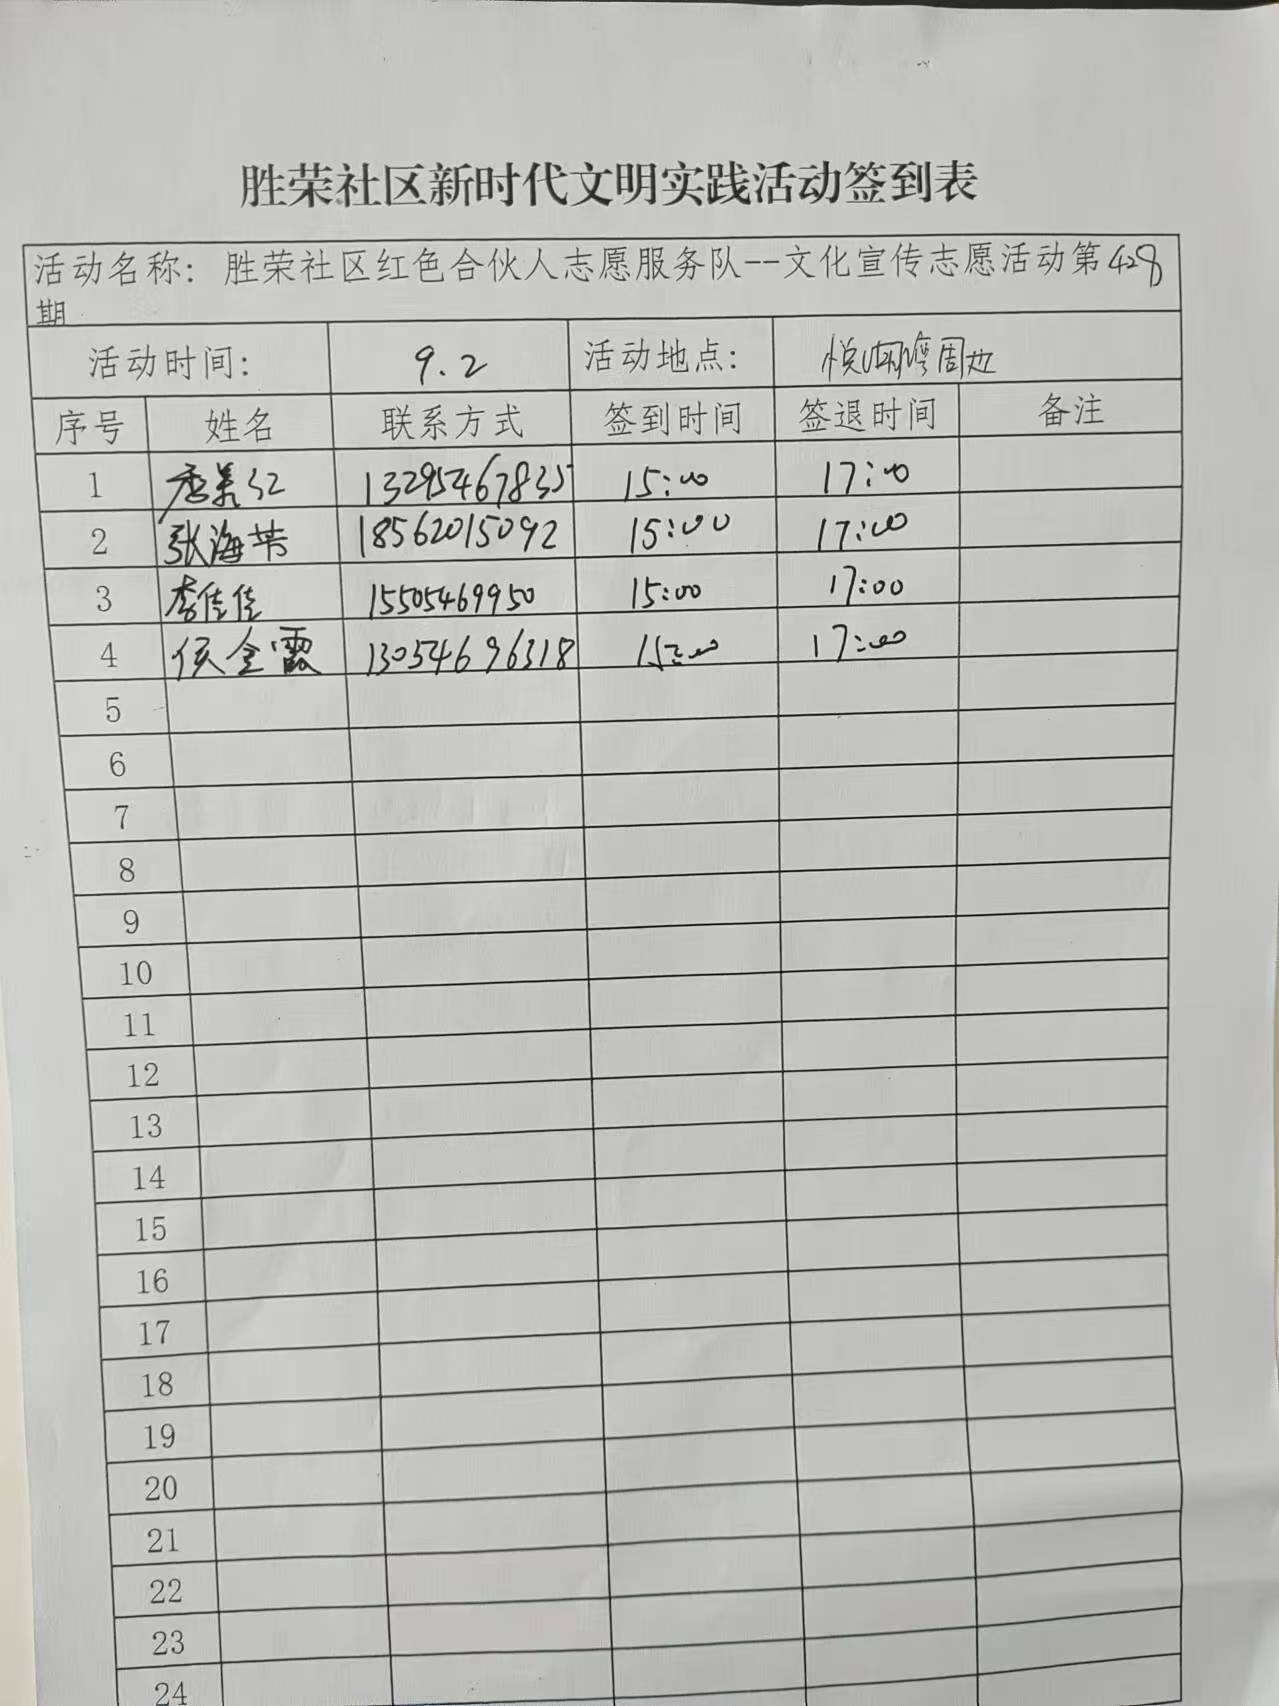 胜荣社区新时代文明实践活动签到表
活动名称：胜荣社区红色合伙人志愿服务队--文化宣传志愿活动第428
期
活动时间： 9.2 活动地点： 悦湖湾周边
序号 姓名 联系方式 签到时间 签退时间 备注
1 13295467835 15:00 17:00
2 张海 18562015092 15:00 17:00
3 李佳佳 15505469950 15:00 17:00
4 侯金霞 13054696318 15:00 17:00
5
6
7
8
9
10
11
12
13
14
15
16
17
18
19
20
21
22
23
24